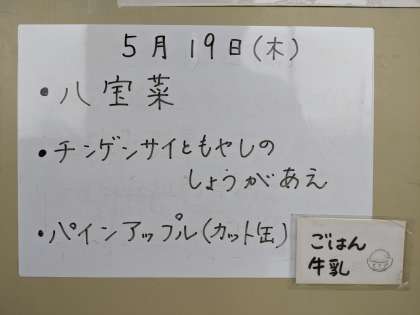 5月19日(木)
・八宝菜
・チンゲンサイともやしの
しょうがあえ
・パインアップル(カット缶)
ごはん
牛乳